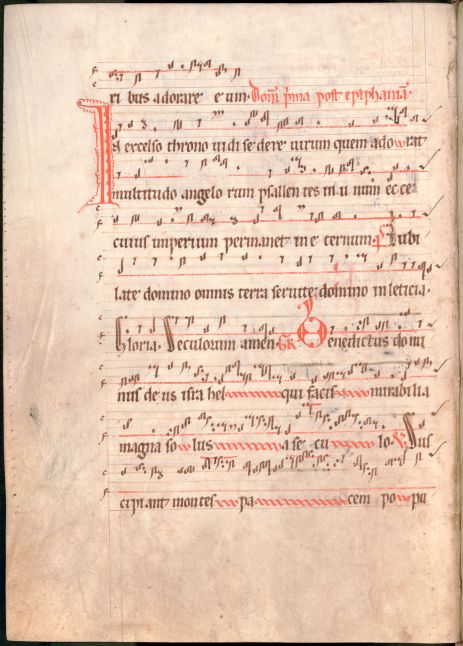 ri bus adorare eum. Dom̅ p̅ma post epiphaniā.
In excelso throno uidi sedere uirum quem adorat
multitudo angelo rum psallentes in u num ecce
cuius imperium permanet in e ternum. ps Iubi
late domino omnis terra seruite domino in leticia.
Gloria. Seculorum amen. GR Benedictus domi
nus de us isra hel qui facis mirabilia
magna so lus a se cu lo. V Sus
cipiant montes pa cem po pu